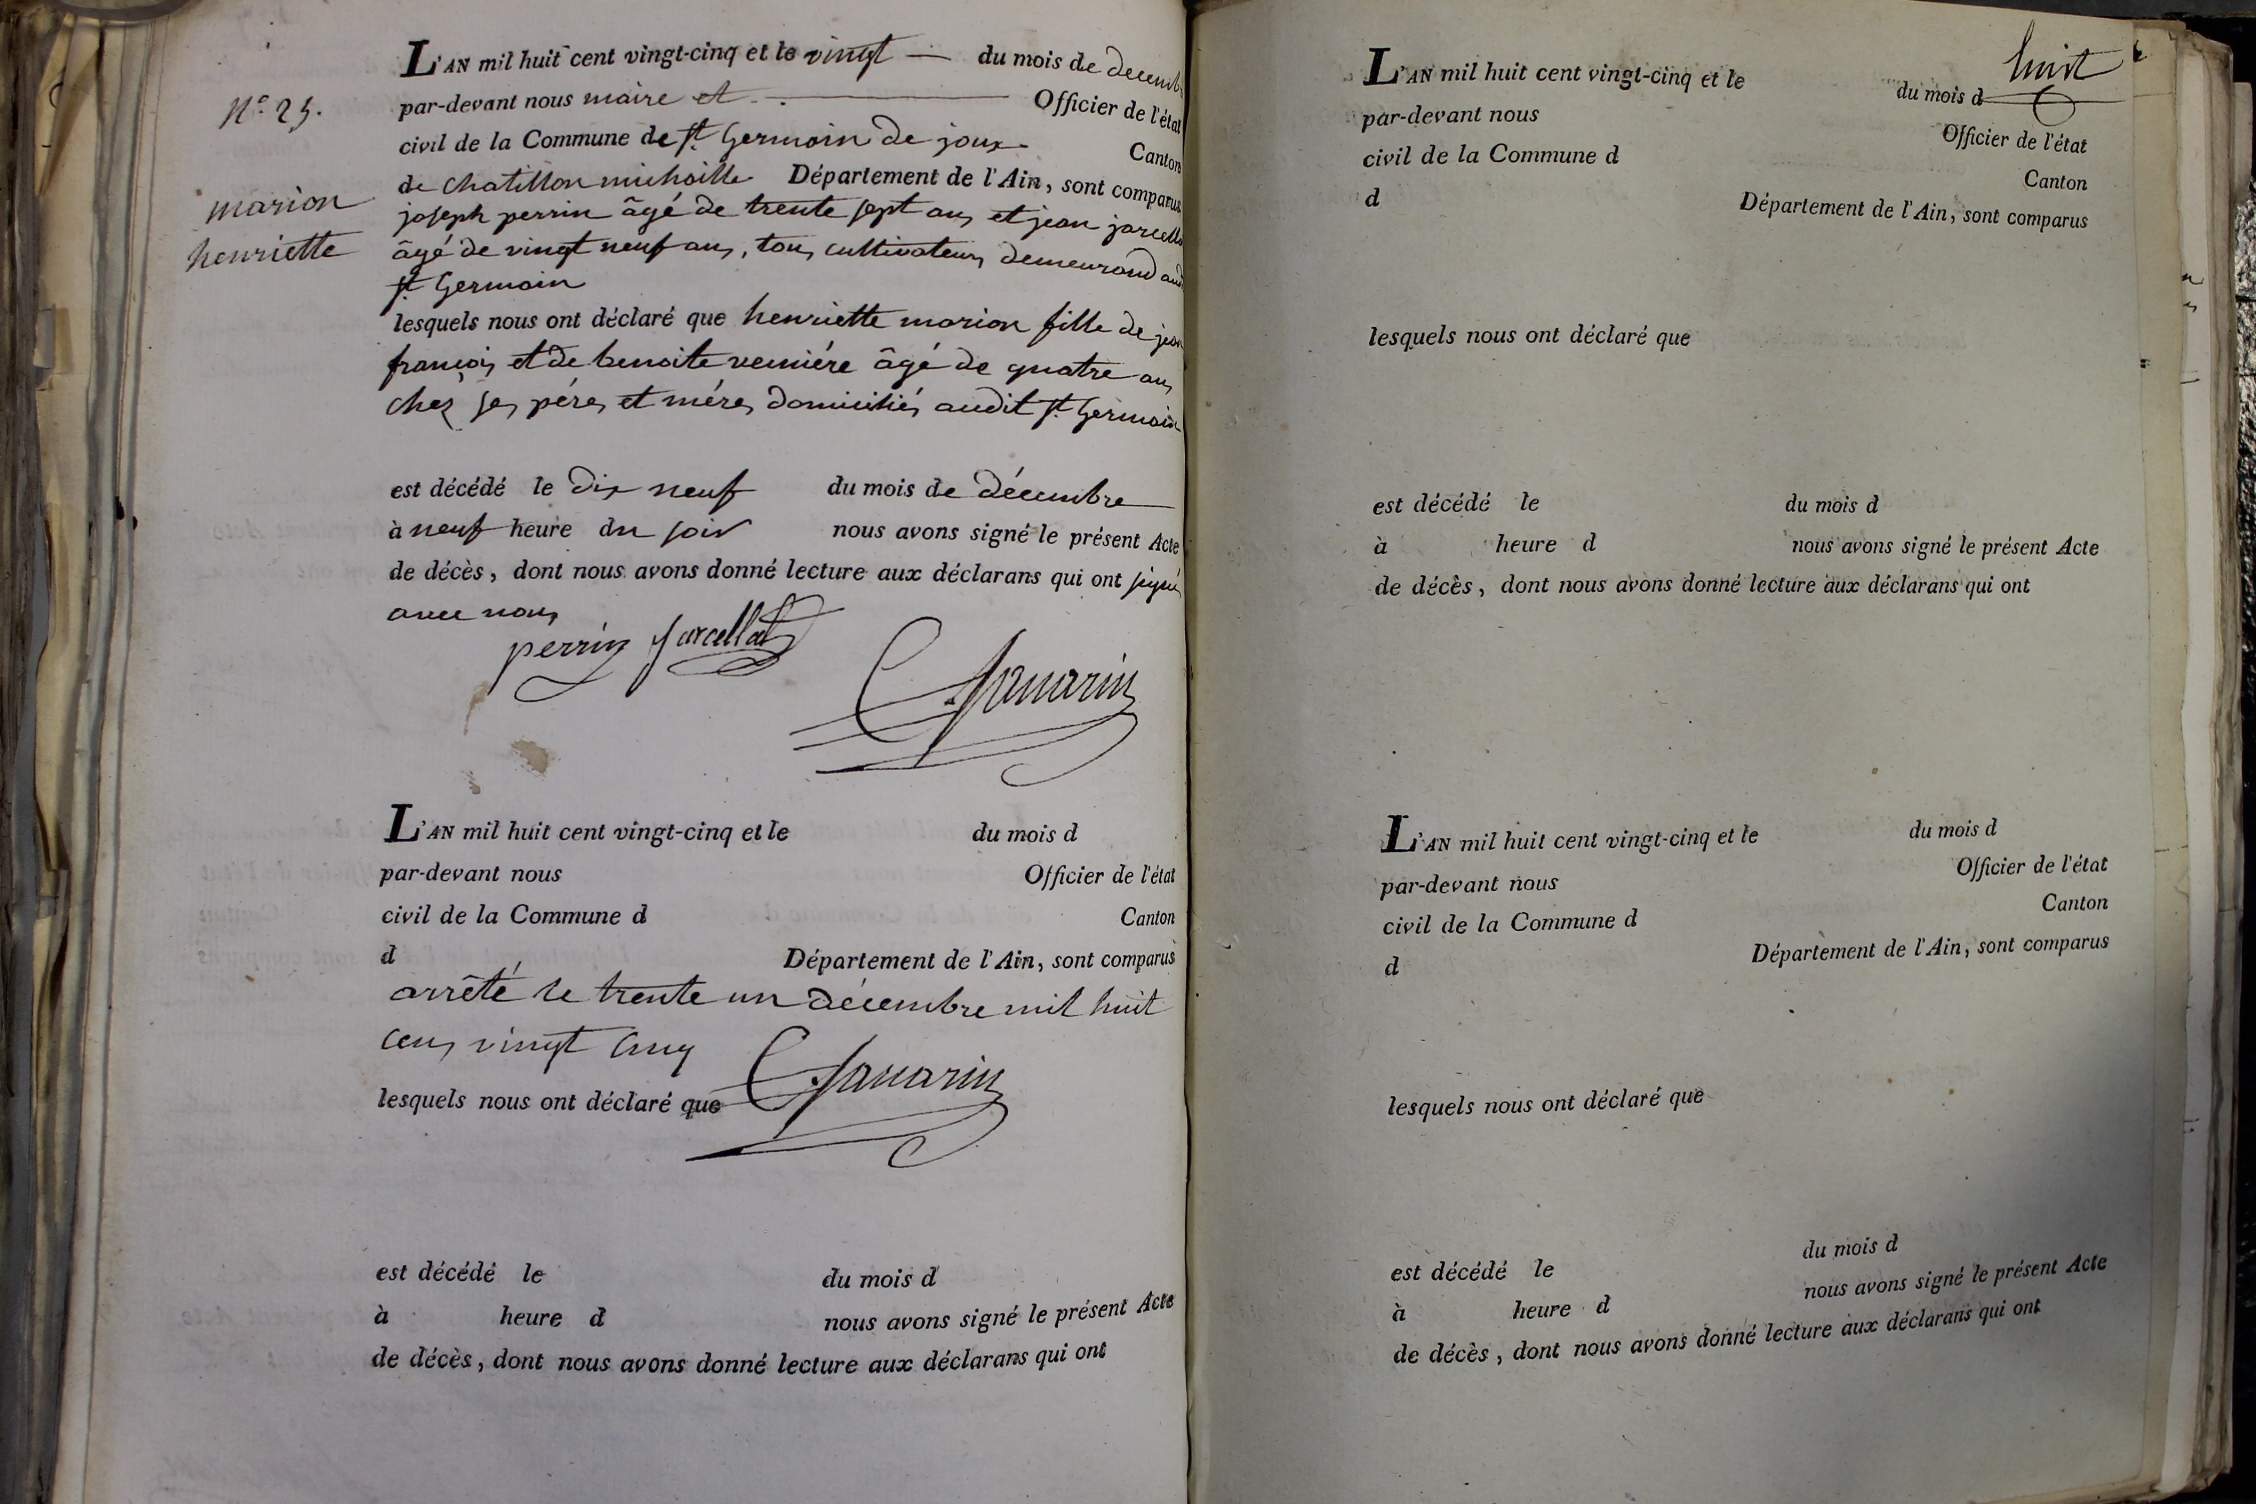 N.° 25.
marion
henriette
L'AN mil huit cent vingt-cinq et le vingt — du mois de decemb
par-devant nous maire et Officier de l'état
civil de la Commune de st. Germain de joux Canton
de chatillon michaille Département de l'Ain, sont comparus
joseph perrin âgé de trente sept ans et jean jarcella
âgé de vingt neuf ans, tous cultivateurs demeurand aud
st. Germain
lesquels nous ont déclaré que henriette marion fille de jean
françois et de benoite âgé de quatre ans
chez ses péres et méres domiciliés audit st. Germain
est décédé le dix neuf du mois de décembre
à neuf heure du soir nous avons signé le présent Acte
de décès, dont nous avons donné lecture aux déclarans qui ont signé
avec nous
perrin jarcellat
Savarin
L'AN mil huit cent vingt-cinq et le du mois d
par-devant nous Officier de l'état
civil de la Commune d Canton
d Département de l'Ain, sont comparus
arrêté le trente un décembre mil huit
cens vingt cinq
Savarin
lesquels nous ont déclaré que
est décédé le du mois d
à heure d nous avons signé le présent Acte
de décès, dont nous avons donné lecture aux déclarans qui ont
huit
L'AN mil huit cent vingt-cinq et le du mois d
par-devant nous Officier de l'état
civil de la Commune d Canton
d Département de l'Ain, sont comparus
lesquels nous ont déclaré que
est décédé le du mois d
à heure d nous avons signé le présent Acte
de décès, dont nous avons donné lecture aux déclarans qui ont
L'AN mil huit cent vingt-cinq et le du mois d
par-devant nous Officier de l'état
civil de la Commune d Canton
d Département de l'Ain, sont comparus
lesquels nous ont déclaré que
est décédé le du mois d
à heure d nous avons signé le présent Acte
de décès, dont nous avons donné lecture aux déclarans qui ont